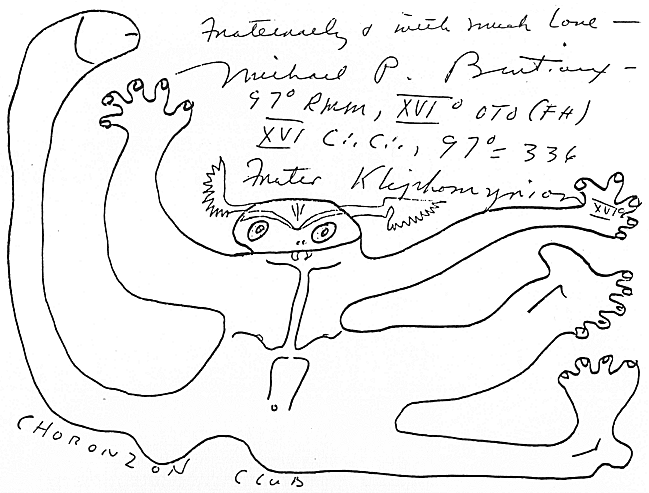 Fraternally & with much Love —
Michael P. Bertiaux —
97° RMM, XVI° OTO (FH)
XVI C∴C∴, 97° = 336
Frater
XVI°
CHORONZON
CLUB